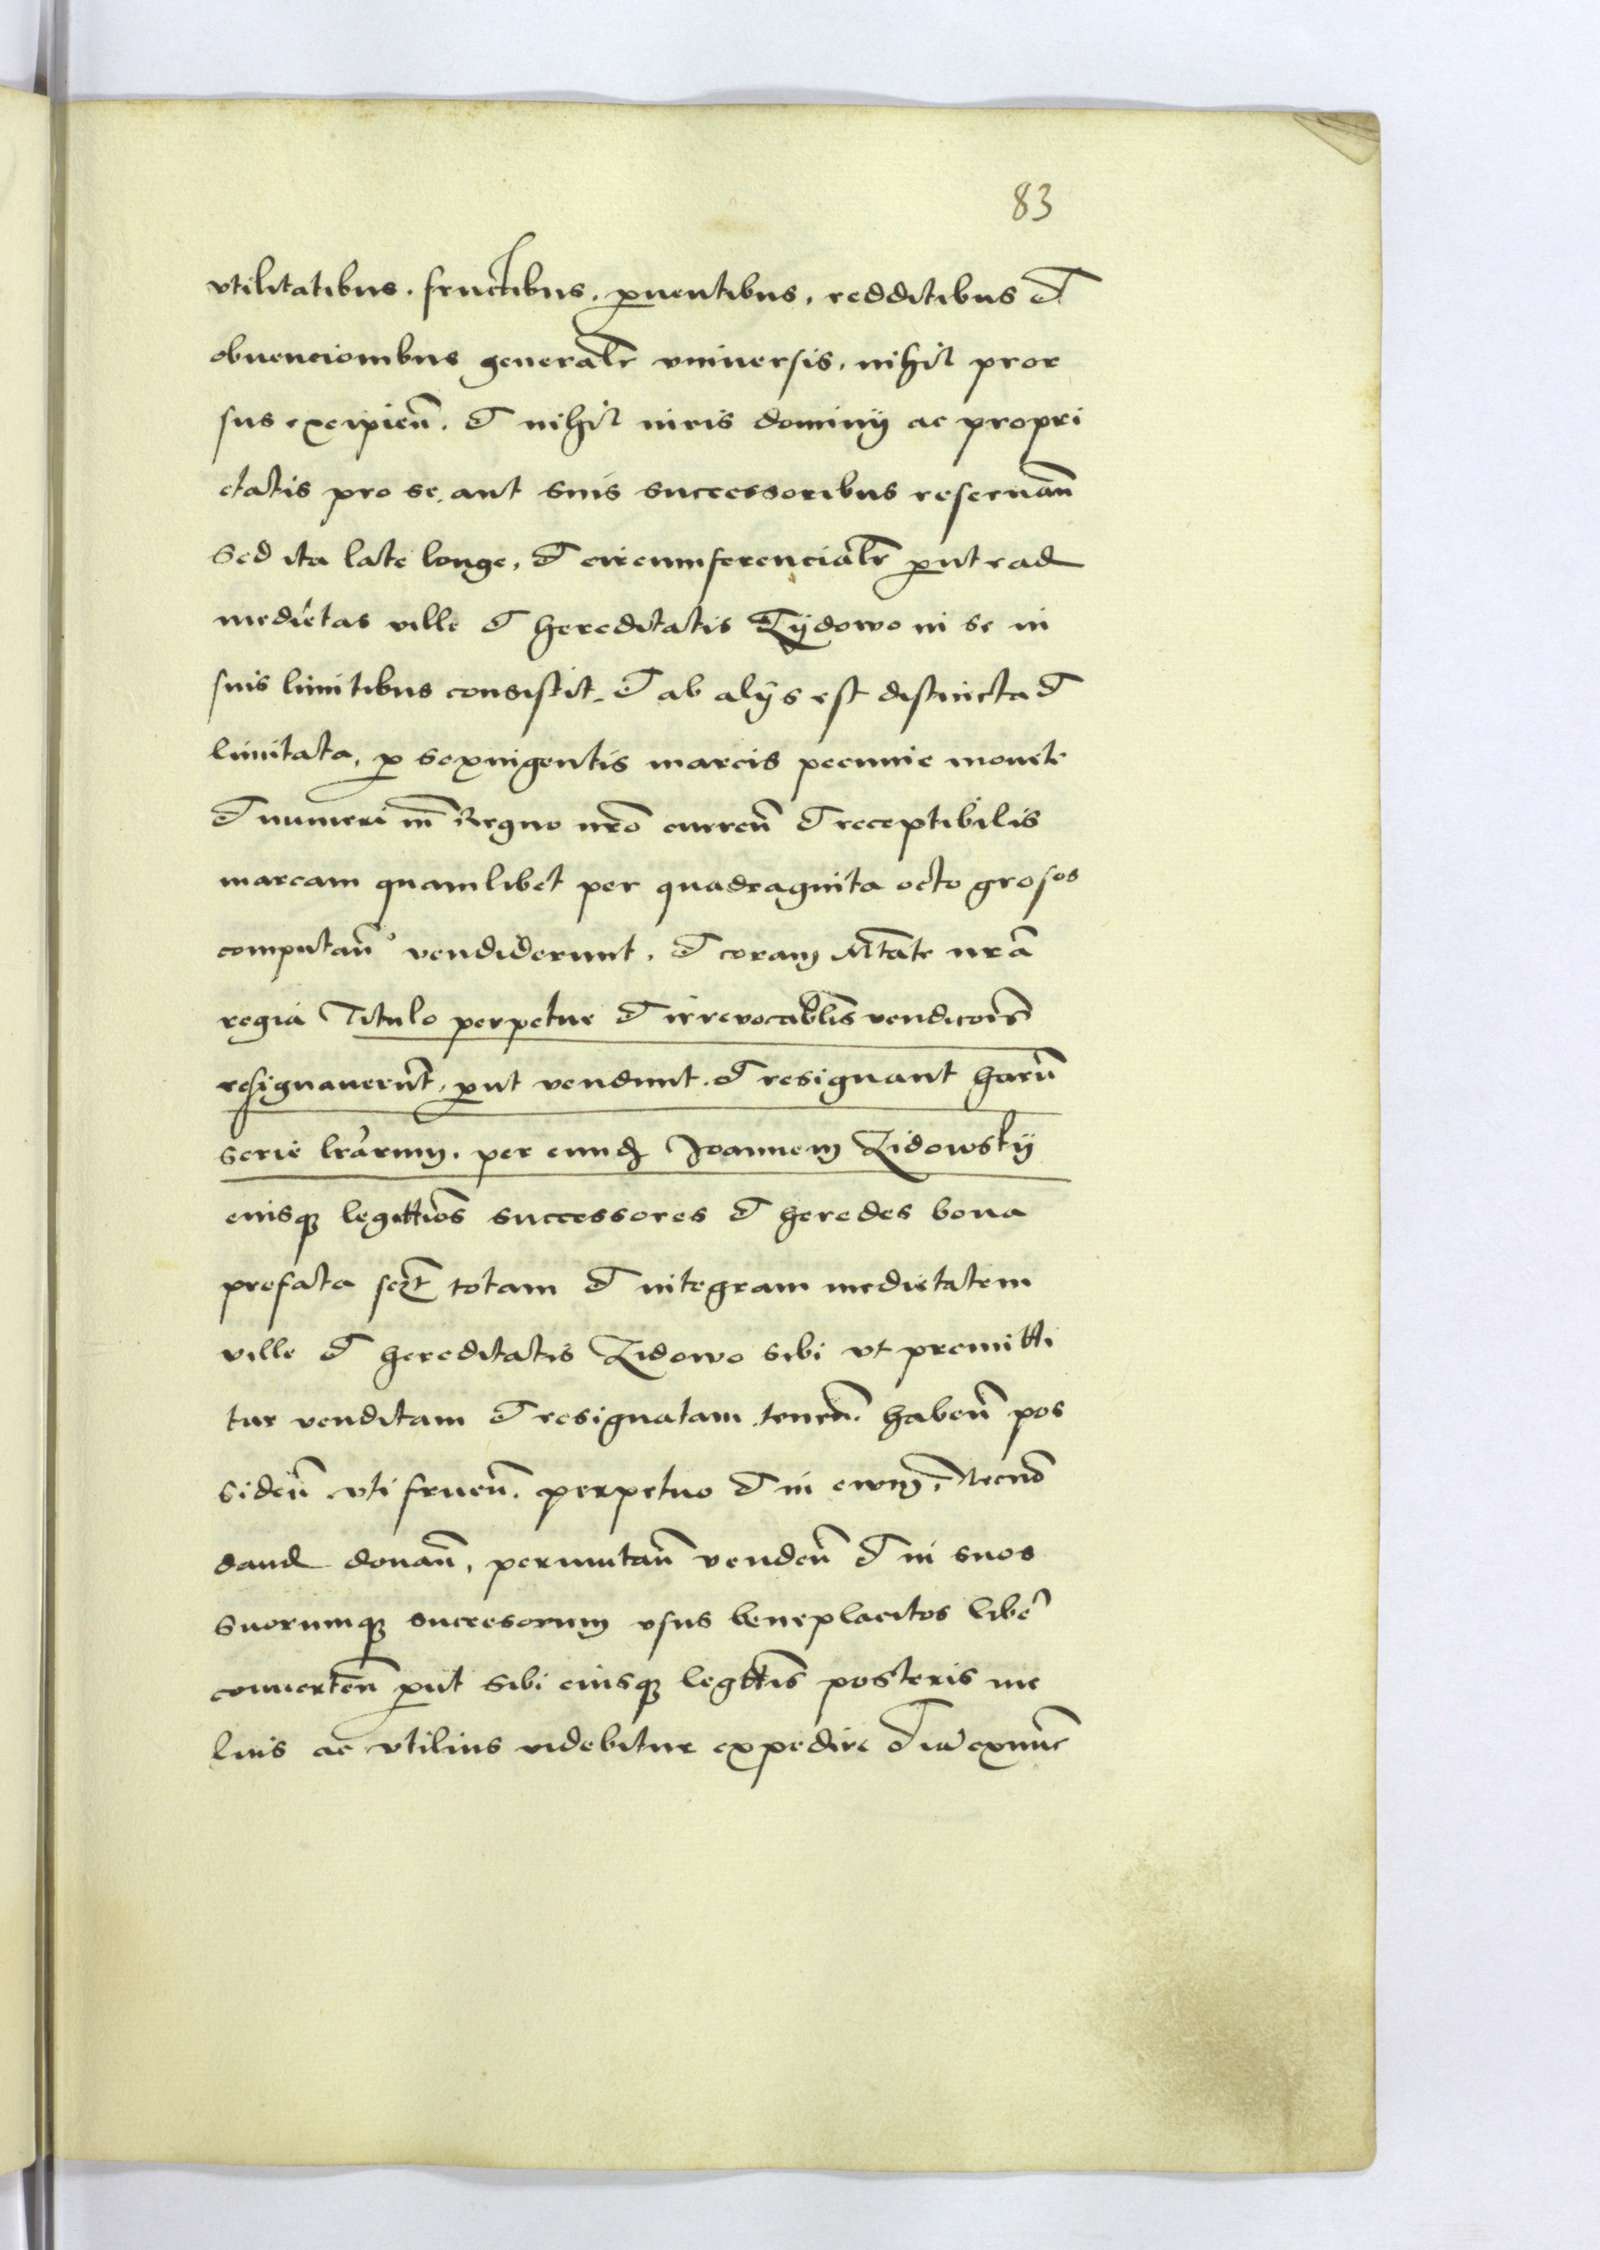 83
vtilitatibus . fructibus . ꝓuentibus . redditibus et
obuencionibus generalr̃ vniuersis . nihil pror
sus excipien̄ . et nihil iuris dominij ac propri
etatis pro se . aut suis successoribus reseruan̄
Sed ita late longe , et circumferencialr̃ ꝓut ead
medietas ville et hereditatis Zydowo in se in
suis limitibus consistit . et ab alijs est distincta et
limitata , ꝓ sexingentis marcis pecunie monete
et numeri in Regno nr̃o curren̄ et receptibilis
marcam quamlibet per quadraginta octo grosos
computan̄ vendiderunt , et coram Mtate nr̃a
regia Titulo perpetue et irrevocabl̃is vendicõis
resignauerũt . ꝓut vendunt . et resignant harũ
serie lr̃arum . per eund Joannem Zidowsky
eiusqꝫ legittĩos successores et heredes bona
prefata sczt̃ totam et integram medietatem
ville et hereditatis Zidowo sibi vt premitti
tur venditam et resignatam . tenen̄ . haben̄ pos
siden̄ vti fruen̄ . perpetuo et in ewm̃ , Necnõ
dand donan̄ , permutan̄ venden̄ et in suos
suorumqꝫ succesorum vsus beneplacitos liber̃
conuerten̄ ꝓut sibi eiusqꝫ legittĩs posteris me
lius ac vtilius videbitur expedire et iã exnũc